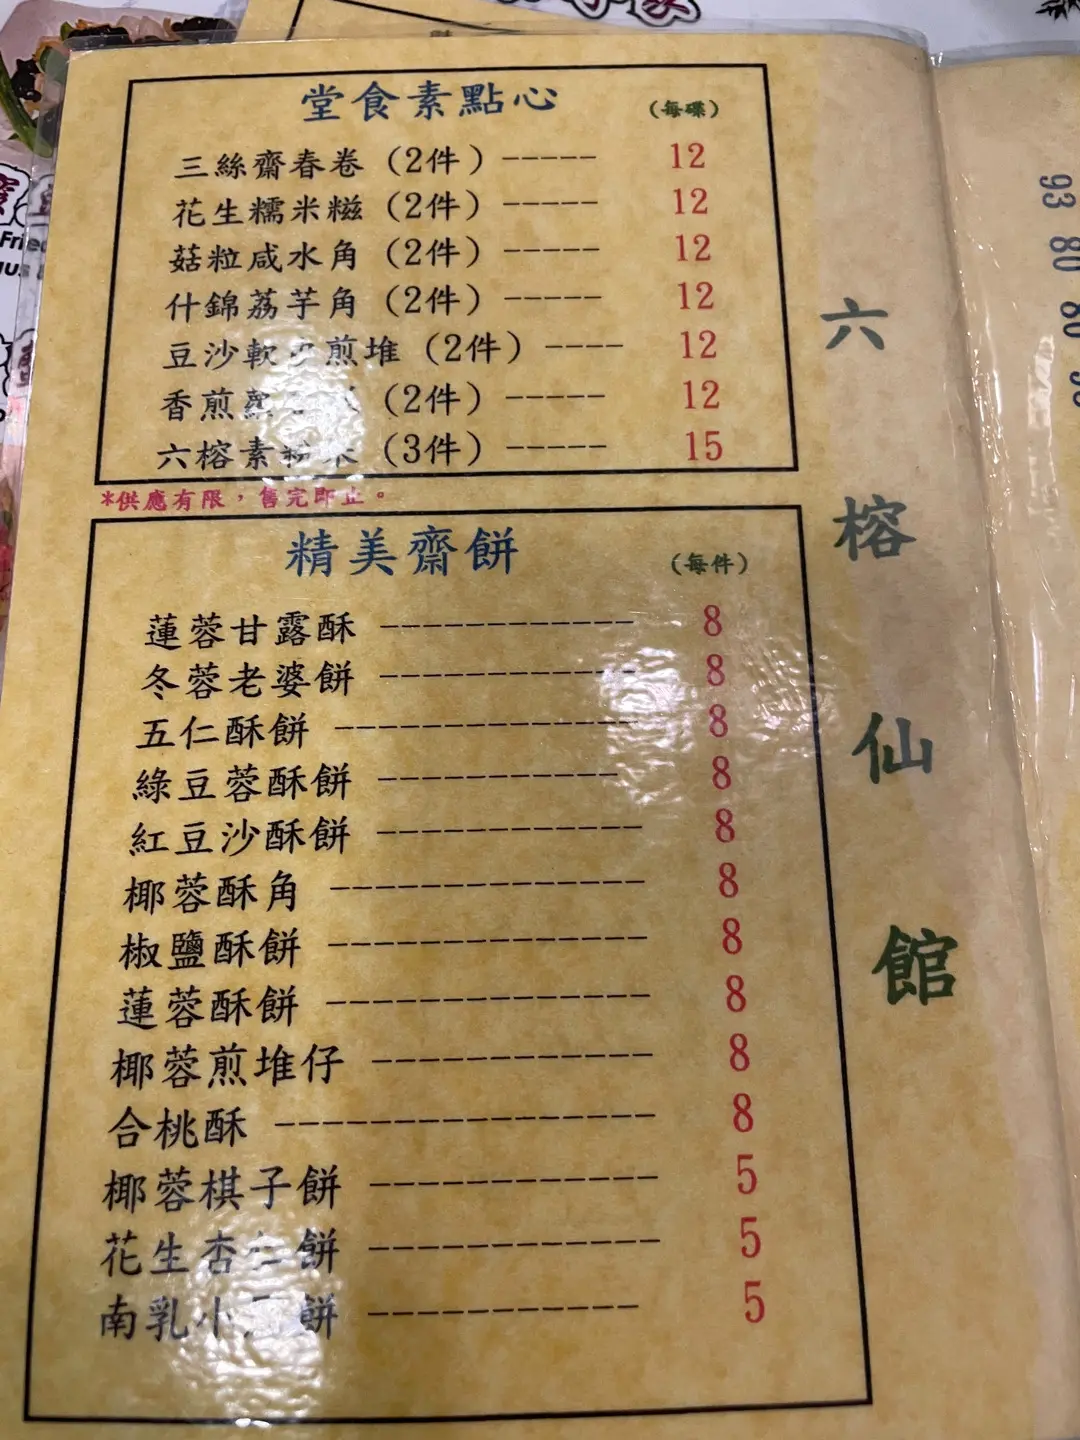 堂食素點心 (每碟)
三絲齋春卷 (2件) ----- 12
花生糯米糍 (2件) ----- 12
菇粒咸水角 (2件) ----- 12
什錦荔芋角 (2件) ----- 12
豆沙軟 煎堆 (2件) ---- 12
香煎 (2件) ----- 12
六榕素粉果 (3件) ----- 15
*供應有限，售完即止。
精美齋餅 (每件)
蓮蓉甘露酥 ------------ 8
冬蓉老婆餅 ------------ 8
五仁酥餅 -------------- 8
綠豆蓉酥餅 ------------ 8
紅豆沙酥餅 ------------- 8
椰蓉酥角 --------------- 8
椒鹽酥餅 --------------- 8
蓮蓉酥餅 --------------- 8
椰蓉煎堆仔 ------------- 8
合桃酥 ------------------ 8
椰蓉棋子餅 ------------- 5
花生杏仁餅 ------------- 5
南乳小 餅 ------------ 5
六榕仙館
93
80
80